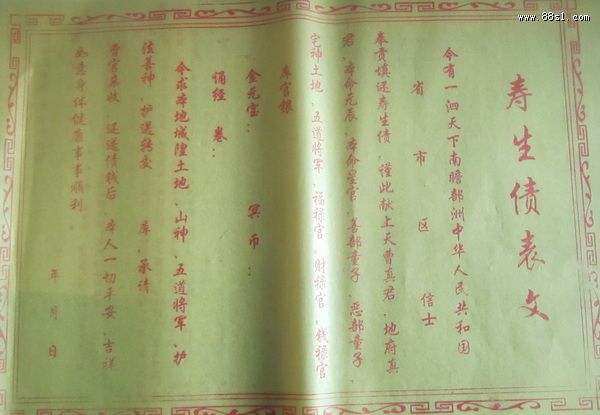 寿生债表文
今有一泗天下南瞻部洲中华人民共和国
省 市 区 信士
奉责填还寿生债，谨此献上天曹真君、地府真
君、本命元辰、本命星官、善部童子、恶部童子、
宅神土地、五道将军、福禄官、财禄官、钱禄官、
库官银
金元宝： 冥币：
诵经 卷：
今求本地城隍土地、山神、五道将军、护
法善神、护送转交 库、承请
曹官亲收、还送债钱后、本人一切平安、吉祥
如意身体健康事事顺利。
年 月 日
www.88s1.com